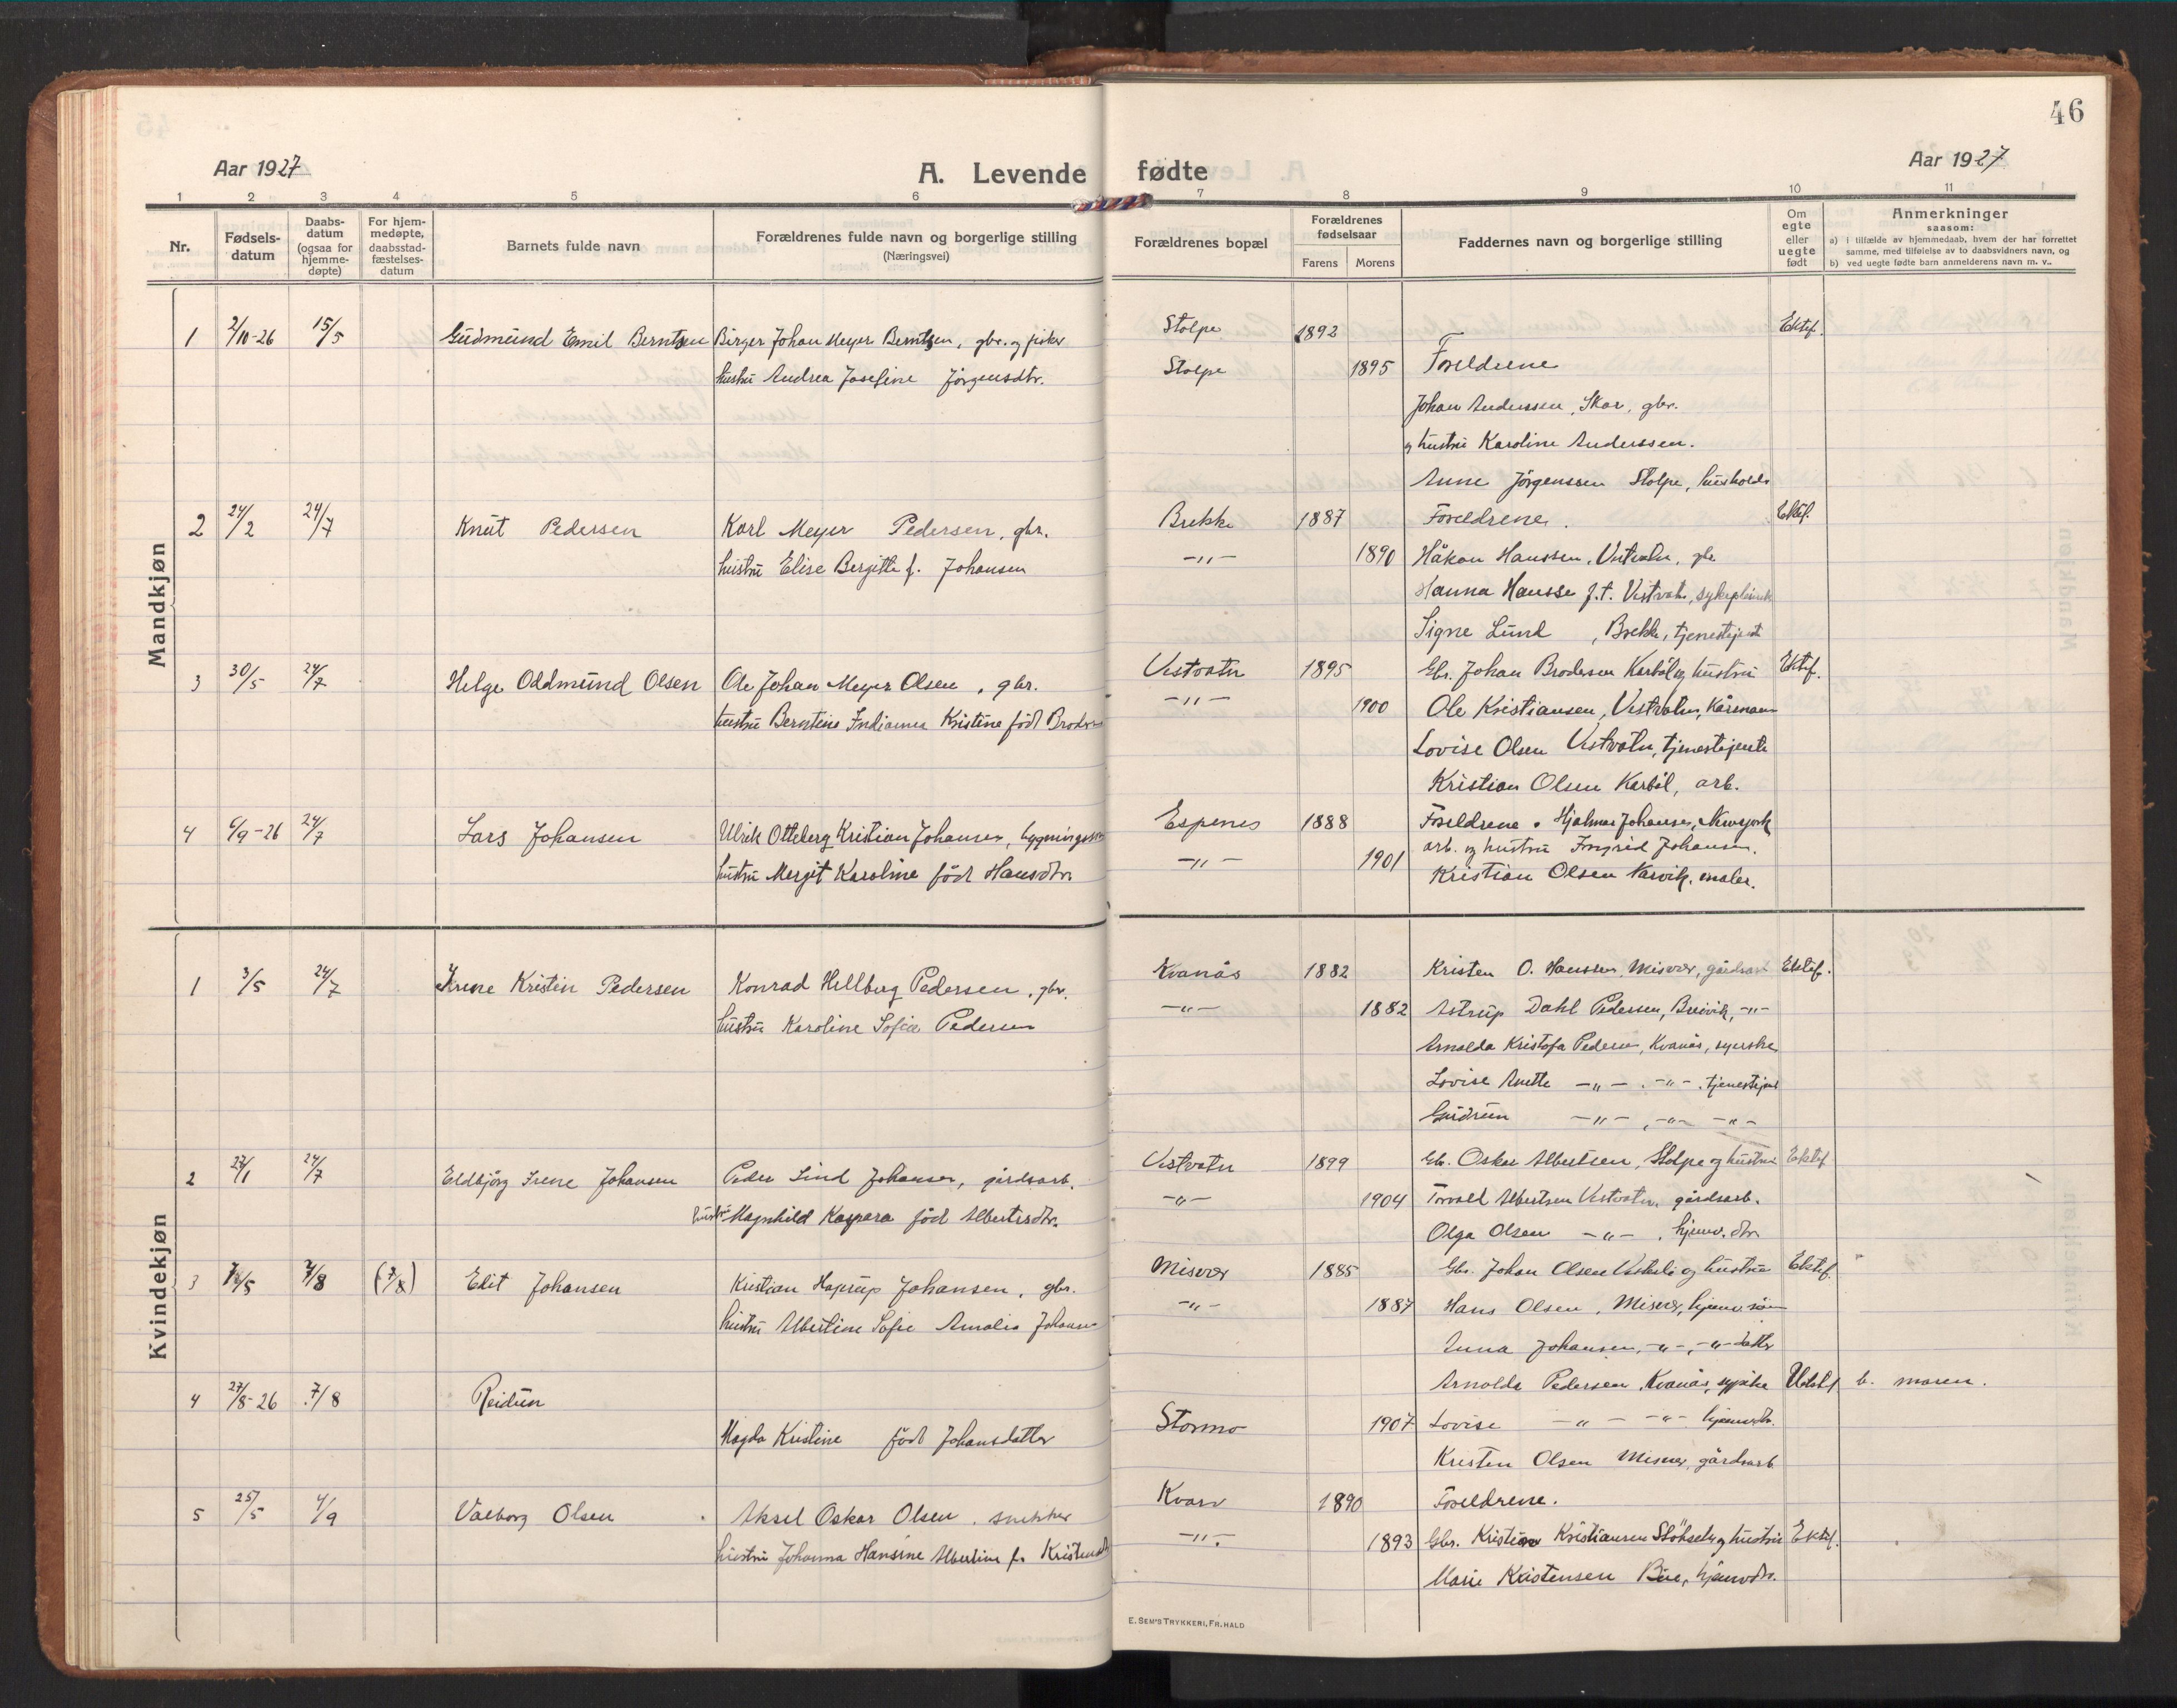 46
Aar 1927
A. Levende fødte
Aar 1927
1 2 3 4 5 6 7 8 9 10 11
Nr.
Fødsels-
datum
Daabs-
datum
(ogsaa for
hjemme-
døpte)
For hjem-
medøpte,
daabsstad-
fæstelses-
datum
Barnets fulde navn
Forældrenes fulde navn og borgerlige stilling
(Næringsvei)
Forældrenes bopæl
Forældrenes
fødselsaar
Farens Morens
Faddernes navn og borgerlige stilling
Om
egte
eller
uegte
født
Anmerkninger
saasom:
a) i tilfælde av hjemmedaab, hvem der har forrettet
samme, med tilføielse av to daabsvidners navn, og
b) ved uegte fødte barn anmelderens navn m. v..
Mandkjøn
1 2/10-26 15/5 Gudmund Emil Berntsen Birger Johan Meyer Berntsen, gbr. og fisker Stolpe 1892 Ektef.
hustru Andrea Josefine Jörgensdtr. Stolpe 1895 Foreldrene
Johan Anderssen, Skar, gbr.
og hustru Karoline Anderssen.
Anne Jörgenssen Stolpe, hushold
2 24/2 24/7 Knut Pedersen Karl Meyer Pedersen, gbr. Brekke 1887 Foreldrene. Ektef.
hustru Elise Bergitte f. Johansen -"- 1890 Håkon Hanssen, Vestvatn, gbr
Hanna Hansse f.t. Vestvatn, sykepleiersk
Signe Lund, Brekke, tjenestejent
3 30/5 24/7 Helge Oddmund Olsen Ole Johan Meyer Olsen, gbr. Vestvatn 1895 Gbr. Johan Brodersen Karböl og hustru Ektef.
hustru Berntine Indianna Kristine född Broders -"- 1900 Ole Kristiansen, Vestvatn, Kårmann
Lovise Olsen Vestvatn, tjenestejente
Kristian Olsen Karböl, arb.
4 6/9-26 24/7 Lars Johansen Ulrik Otteberg Kristian Johansen, bygnings Espenes 1888 Foreldrene. Hjalmar Johansen, Newyork
arb. og hustru Ingrid Johansen.
hustru Mergit Karoline född Hansdtr. -"- 1901 Kristian Olsen Narvik. maler.
Kvindekjøn
1 3/5 24/7 Irene Kristin Pedersen Konrad Hellberg Pedersen, gbr. Kvanås 1882 Kristen O. Hanssen, Misvær, gårdsarb Ektef.
hustru Karoline Sofie Pedersen -"- 1882 Astrup Dahl Pedersen, Breivik, -"-
Arnolda Kristofa Pedersen, Kvanås, syerske
Lovise Anette -"- . -"- . tjenestejent
Gudrun -"- , -"- -"-
2 27/1 24/7 Eldbjörg Irene Johansen Peder Lind Johansen, gårdsarb. Vestvatn 1899 Gbr. Oskar Albertsen, Stolpe og hustru Ektef
hustru Magnhild Kaspara född Albertsdtr. -"- 1904 Torvald Albertsen Vestvatn, gårdsarb.
Olga Olsen -"- . hjemv. dtr.
3 /5 7/8 (7/8) Edit Johansen Kristian Haprup Johansen, gbr. Misvær 1885 Gbr. Johan Olsen Vesterli og hustru Ektef.
hustru Albertine Sofie Amalie Johanse -"- 1887 Hans Olsen, Misvær, hjemv. sön
Anna Johansen, -"-, -"- datter
4 27/8-26 7/8 Reidun Arnolda Pedersen, Kvanås, sypike Uekt. f b. moren.
Magda Kristine född Johansdatter Stormo 1907 Lovise -"- -"- hjemv. dtr.
Kristen Olsen Misvær, gårdsarb
5 25/5 4/9 Valborg Olsen Aksel Oskar Olsen. snekker Kvarv 1890 Foreldrene.
hustru Johanna Hansine Albertine f. Kristensdt -"- 1893 Gbr. Kristian Kristiansen Slökset og hustru Ektef.
Marie Kristensen Bue, hjemv. dtr.
E. SEM'S TRYKKERI, FR. HALD